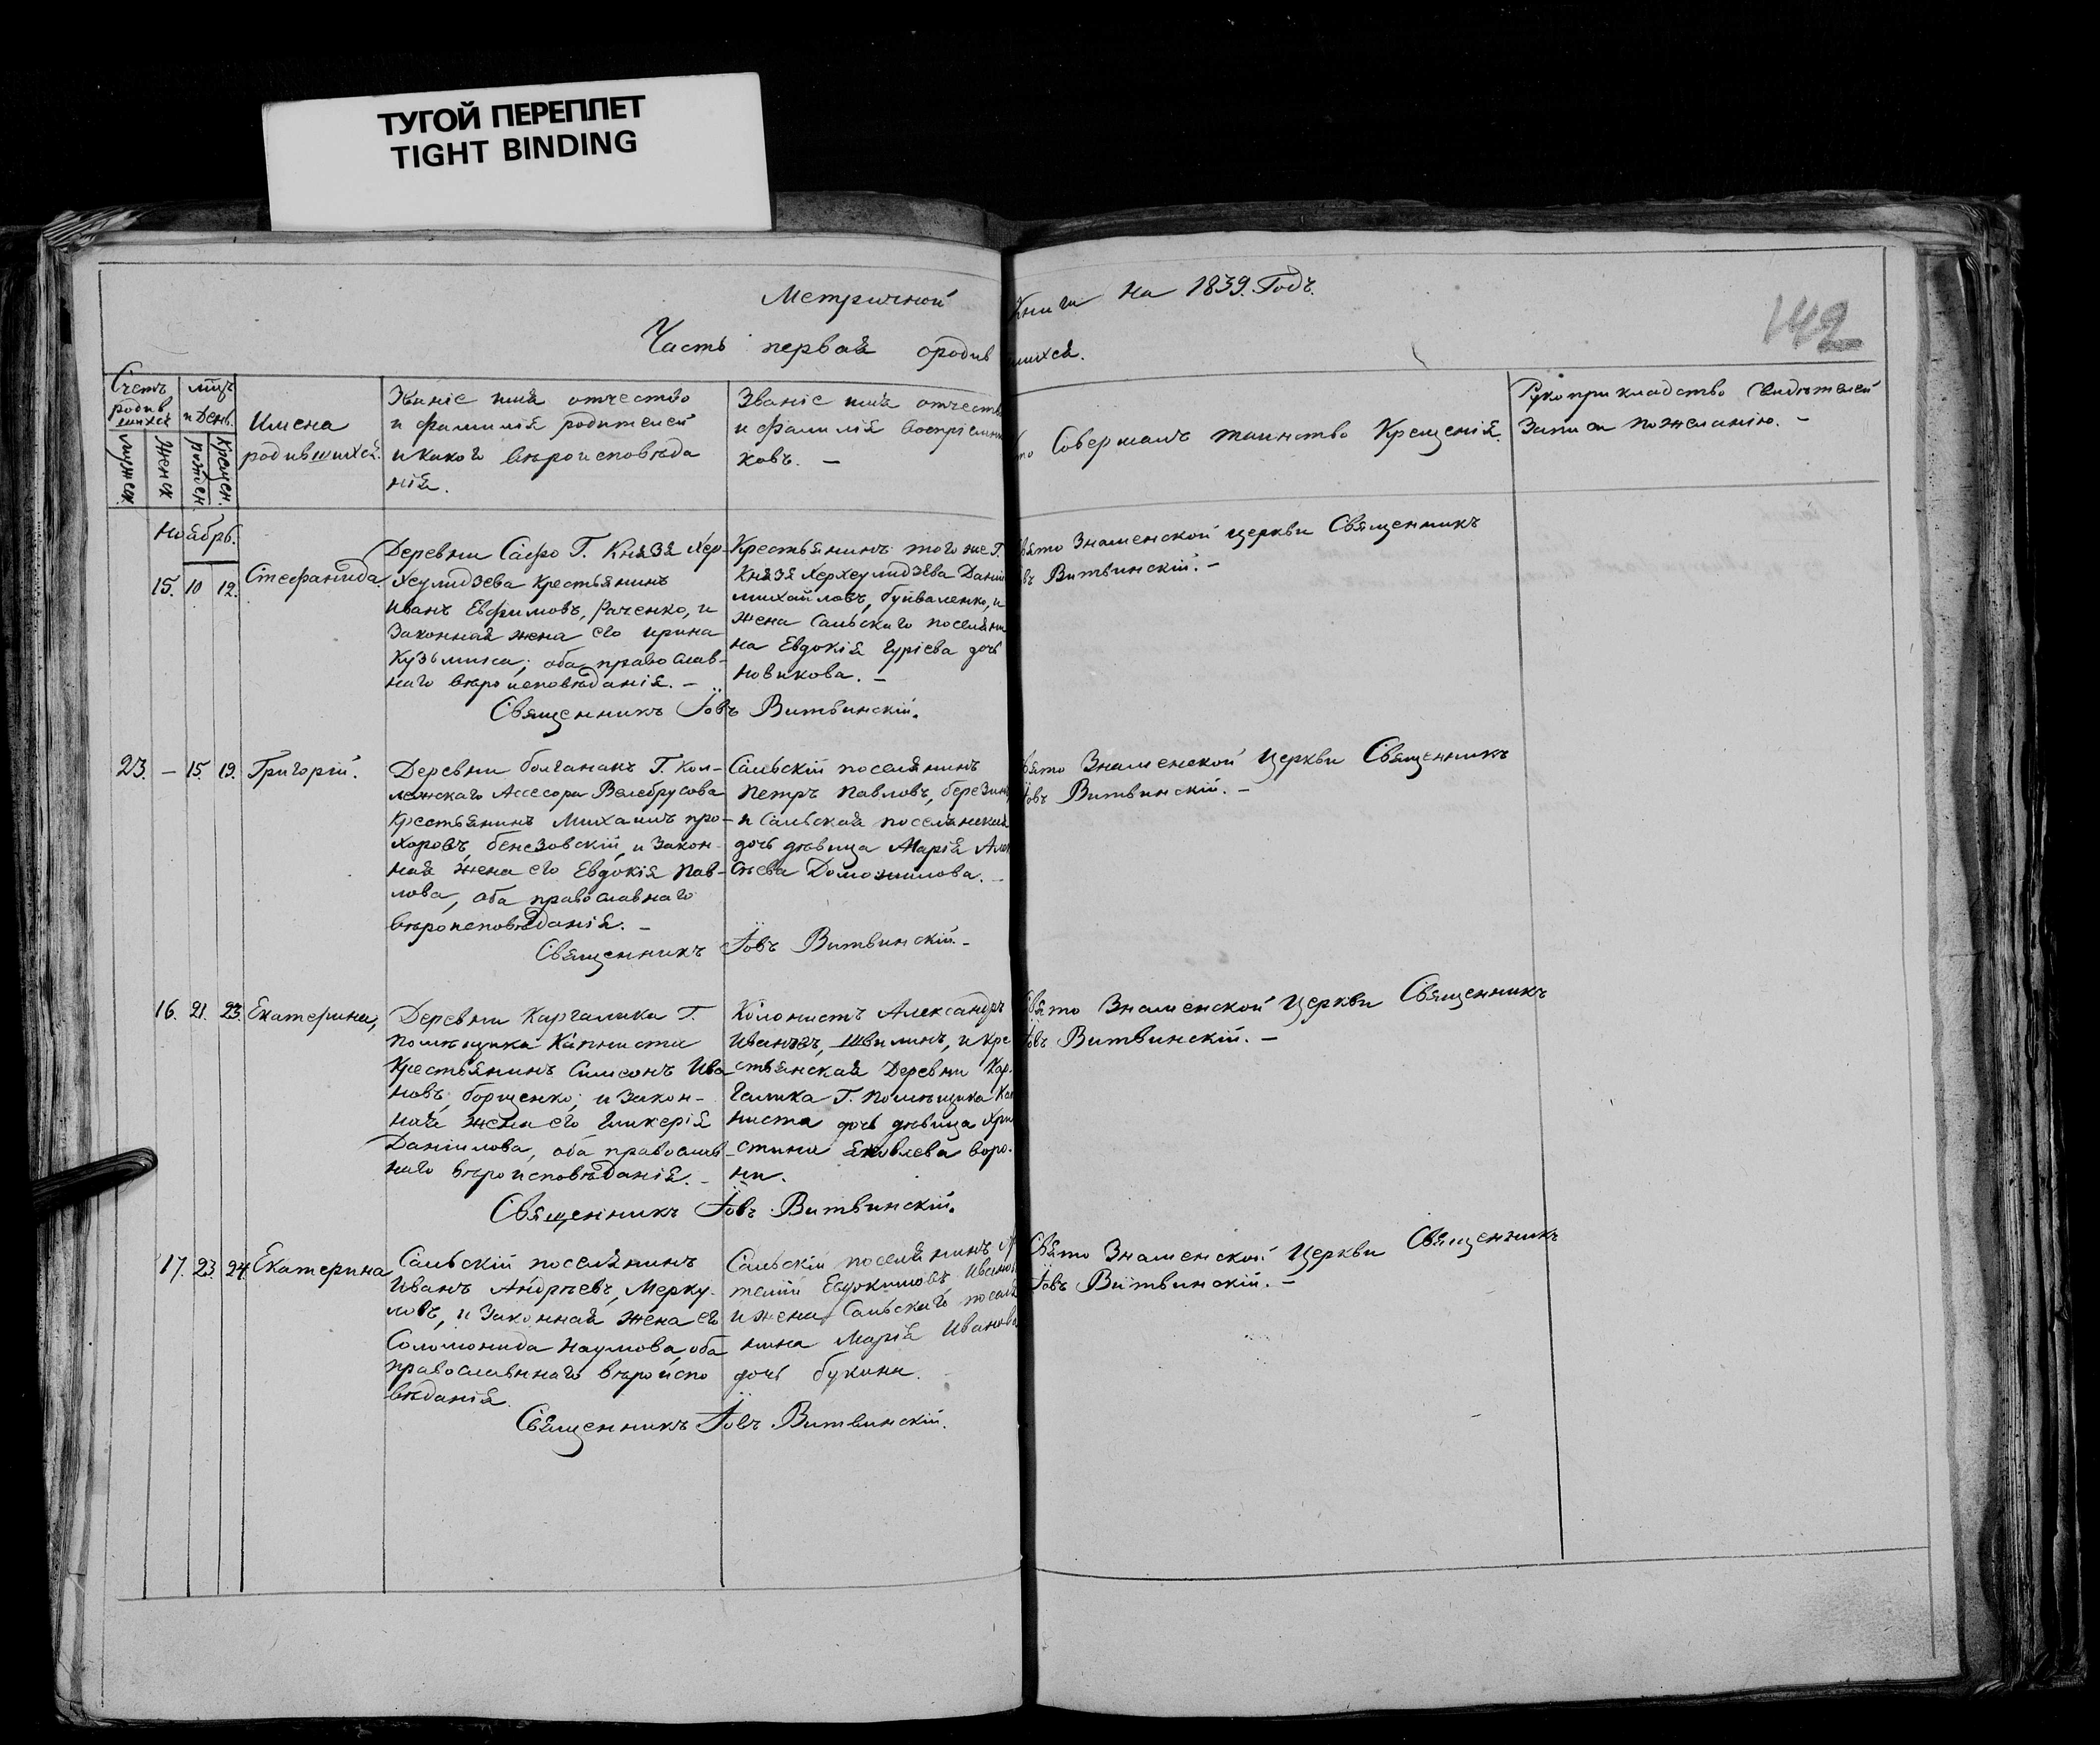 ТУГОЙ ПЕРЕПЛЕТ
TIGHT BINDING
Метричной Книги на 1839. Годъ.
142
Часть первая ородившихся.
Счетъ родившихся
мужеск.
женск
мцъ и День.
рожден.
Крещен.
Имена
родившихся.
Званіе имя отчество
и фамилія родителей
и какого вѣроисповѣда
нія.
Званіе имя отчество
и фамилія воспріемни
ковъ. –
Кто Совершалъ таинство Крещенія.
Рукоприкладство свидѣтелей
Записи по желанію. –
Ноябрь.
15. 10 12. Стефанида
Деревни Сафо Г. Князя Хер-
хеулидзева Крестьянинъ
Иванъ Евфимовъ, Раченко, и
Законная жена его Ирина
Кузьмина; оба православ-
наго вѣроисповѣданія. –
Крестьянинъ того же Г.
Князя Херхеулидзева Даніи
михайловъ, буйваленко, и
жена Сальскаго поселяни
на Евдокія Гуріева дочь
Новикова. –
Свято Знаменской церкви Священникъ
Іовъ Витвинскій. –
Священникъ Іовъ Витвинскій.
23. – 15. 19. Григорій.
Деревни болганакъ Г. Кол-
лежскаго Ассесора Велебрусова
Крестьянинъ Михаилъ про-
хоровъ, бенезовскій, и закон-
ная жена его Евдокія Пав-
лова, оба православнаго
вѣроисповѣданія. –
Сальскій поселянинъ
Петръ Павловъ, березин
и Сальская поселянская
дочь дѣвица Марія Алек
сѣева Доможилова. –
Свято Знаменской Церкви Священникъ
Іовъ Витвинскій. –
Священникъ Іовъ Витвинскій. –
16. 21. 23. Екатерина,
Деревни Каргалика Г.
помѣщика Капниста
Крестьянинъ Симеонъ Ива
новъ, борщенко; и закон-
ная жена его Гликерія
Даніилова, оба православ-
наго вѣроисповѣданія. –
Колонистъ Александръ
Ивановъ, Швилинъ, и кре
стьянская Деревни Кар-
галика Г. Помѣщика Кап
ниста дочь дѣвица Хри
стина Яковлева воро-
на.
Свято Знаменской Церкви Священникъ
Іовъ Витвинскій. –
Священникъ Іовъ Витвинскій.
17. 23 24 Екатерина
Сальскій поселянинъ
Иванъ Андрѣевъ, Мерку-
ловъ, и Законная жена его
Соломонида Наумова, оба
православнаго вѣроиспо
вѣданія.
Сальскій поселянинъ
Евдокимовъ Иванов
и жена Сальскаго поселя
нина Марія Иванова
дочь букина.
Свято Знаменской Церкви Священникъ
Іовъ Витвинскій. –
Священникъ Іовъ Витвинскій.